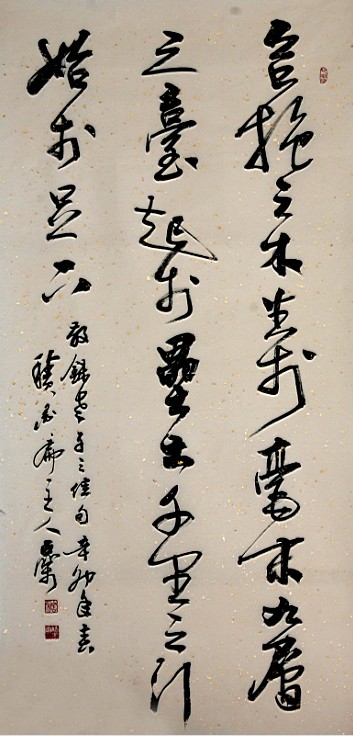 合抱之木生於毫末九層
之臺起於壘土千里之行
始於足下
敬録老子之佳句辛卯年春
积石斋主人